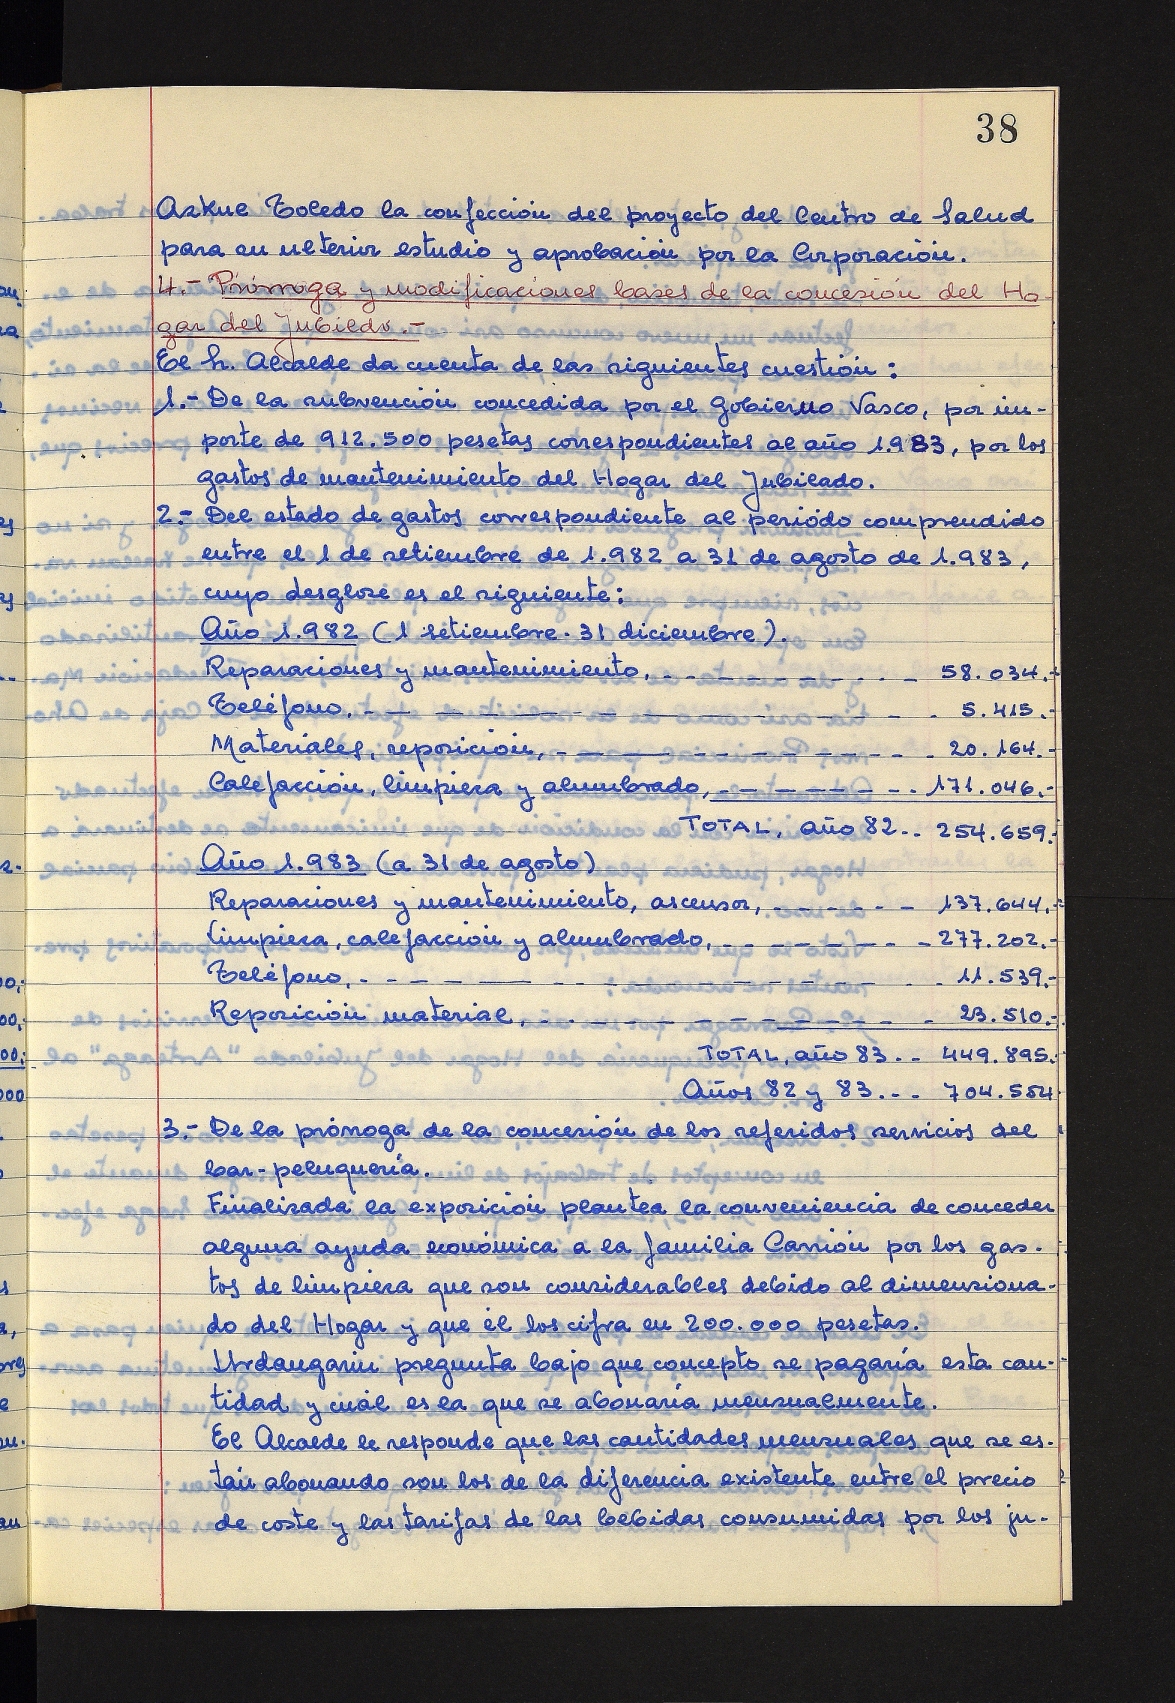 38
Azkue Toledo la confección del proyecto del Centro de Salud
para su ulterior estudio y aprobación por la Corporación.
4.- Prórroga y modificaciones bases de la concesión del Ho-
gar del Jubilado.-
El Sr. Alcalde da cuenta de las siguientes cuestión:
1.- De la subvención concedida por el Gobierno Vasco, por im-
porte de 912.500 pesetas correspondientes al año 1.983, por los
gastos de mantenimiento del Hogar del Jubilado.
2.- Del estado de gastos correspondiente al periódo comprendido
entre el 1 de setiembre de 1.982 a 31 de agosto de 1.983,
cuyo desglose es el siguiente:
Año 1.982 (1 setiembre-31 diciembre).
Reparaciones y mantenimiento, - - - - - - - - 58.034.-
Teléfono, - - - - - - - - 5.415.-
Materiales, reposición, - - - - - - - - 20.164.-
Calefacción, limpieza y alumbrado, - - - - - - 171.046.-
TOTAL, año 82.. 254.659.-
Año 1.983 (a 31 de agosto)
Reparaciones y mantenimiento, ascensor, - - - - - - 137.644.-
Limpieza, calefacción y alumbrado, - - - - - - - 277.202.-
Teléfono, - - - - - - - - 11.539.-
Reposición material, - - - - - - - - 23.510.-
TOTAL, año 83.. 449.895.-
Años 82 y 83... 704.554
3.- De la prórroga de la concesión de los referidos servicios del
bar-peluquería.
Finalizada la exposición plantea la conveniencia de conceder
alguna ayuda económica a la familia Carrión por los gas-
tos de limpieza que son considerables debido al dimensiona-
do del Hogar y que él los cifra en 200.000 pesetas.
Urdangarin pregunta bajo que concepto se pagaría esta can-
tidad y cuál es la que se abonaría mensualmente.
El Alcalde le responde que las cantidades mensuales que se es-
tán abonando son los de la diferencia existente entre el precio
de coste y las tarifas de las bebidas consumidas por los ju-